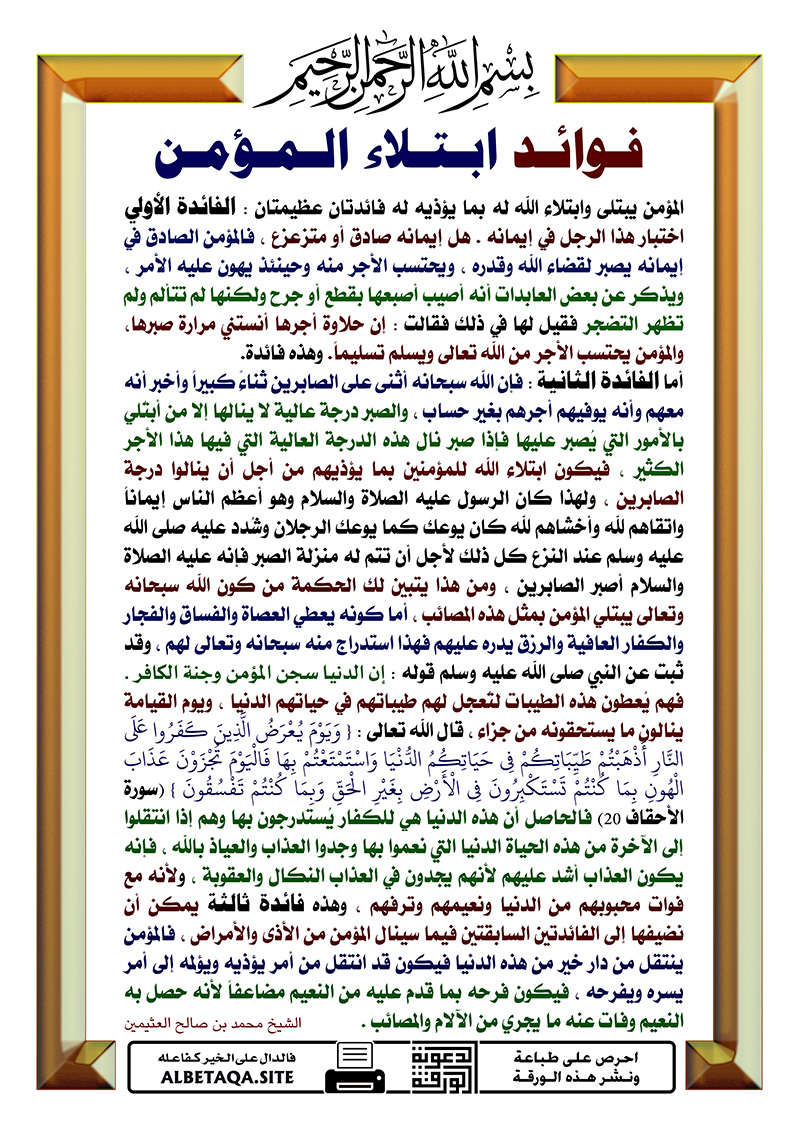 بِسْمِ اللَّهِ الرَّحْمَنِ الرَّحِيمِ
فوائد ابتلاء المؤمن
المؤمن يبتلى وابتلاء الله له بما يؤذيه له فائدتان عظيمتان : الفائدة الأولي
اختبار هذا الرجل في إيمانه . هل إيمانه صادق أو متزعزع ، فالمؤمن الصادق في
إيمانه يصبر لقضاء الله وقدره ، ويحتسب الأجر منه وحينئذ يهون عليه الأمر ،
ويذكر عن بعض العابدات أنه أصيب أصبعها بقطع أو جرح ولكنها لم تتألم ولم
تظهر التضجر فقيل لها في ذلك فقالت : إن حلاوة أجرها أنستني مرارة صبرها،
والمؤمن يحتسب الأجر من الله تعالى ويسلم تسليماً. وهذه فائدة.
أما الفائدة الثانية : فإن الله سبحانه أثنى على الصابرين ثناءً كبيراً وأخبر أنه
معهم وأنه يوفيهم أجرهم بغير حساب ، والصبر درجة عالية لا ينالها إلا من أبتُلي
بالأمور التي يُصبر عليها فإذا صبر نال هذه الدرجة العالية التي فيها هذا الأجر
الكثير ، فيكون ابتلاء الله للمؤمنين بما يؤذيهم من أجل أن ينالوا درجة
الصابرين ، ولهذا كان الرسول عليه الصلاة والسلام وهو أعظم الناس إيماناً
واتقاهم لله وأخشاهم لله كان يوعك كما يوعك الرجلان وشُدد عليه صلى الله
عليه وسلم عند النزع كل ذلك لأجل أن تتم له منزلة الصبر فإنه عليه الصلاة
والسلام أصبر الصابرين ، ومن هذا يتبين لك الحكمة من كون الله سبحانه
وتعالى يبتلي المؤمن بمثل هذه المصائب ، أما كونه يعطي العصاة والفساق والفجار
والكفار العافية والرزق يدره عليهم فهذا استدراج منه سبحانه وتعالى لهم ، وقد
ثبت عن النبي صلى الله عليه وسلم قوله : إن الدنيا سجن المؤمن وجنة الكافر .
فهم يُعطون هذه الطيبات لتعجل لهم طيباتهم في حياتهم الدنيا ، ويوم القيامة
ينالون ما يستحقونه من جزاء ، قال الله تعالى : { وَيَوْمَ يُعْرَضُ الَّذِينَ كَفَرُوا عَلَى
النَّارِ أَذْهَبْتُمْ طَيِّبَاتِكُمْ فِي حَيَاتِكُمُ الدُّنْيَا وَاسْتَمْتَعْتُمْ بِهَا فَالْيَوْمَ تُجْزَوْنَ عَذَابَ
الْهُونِ بِمَا كُنْتُمْ تَسْتَكْبِرُونَ فِي الْأَرْضِ بِغَيْرِ الْحَقِّ وَبِمَا كُنْتُمْ تَفْسُقُونَ } (سورة
الأحقاف 20) فالحاصل أن هذه الدنيا هي للكفار يُستدرجون بها وهم إذا انتقلوا
إلى الآخرة من هذه الحياة الدنيا التي نعموا بها وجدوا العذاب والعياذ بالله ، فإنه
يكون العذاب أشد عليهم لأنهم يجدون في العذاب النكال والعقوبة ، ولأنه مع
فوات محبوبهم من الدنيا ونعيمهم وترفهم ، وهذه فائدة ثالثة يمكن أن
نضيفها إلى الفائدتين السابقتين فيما سينال المؤمن من الأذى والأمراض ، فالمؤمن
ينتقل من دار خير من هذه الدنيا فيكون قد انتقل من أمر يؤذيه ويؤلمه إلى أمر
يسره ويفرحه ، فيكون فرحه بما قدم عليه من النعيم مضاعفاً لأنه حصل به
النعيم وفات عنه ما يجري من الآلام والمصائب . الشيخ محمد بن صالح العثيمين
احرص على طباعة
ونشر هذه الورقة
الورقة الدعوية
فالدال على الخير كفاعله
ALBETAQA.SITE